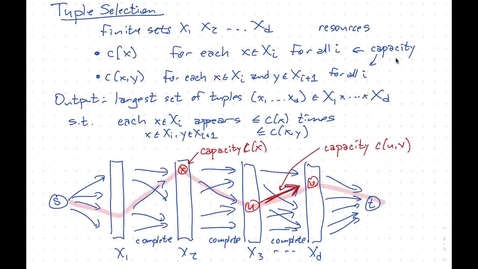 Tuple Selection
finite sets X₁ X₂ ... X_d resources
• c(x) for each x∈X_i for all i ← capacity
• c(x,y) for each x∈X_i and y∈X_{i+1} for all i
Output: largest set of tuples (x₁ ... x_d) ∈ X₁ × ... × X_d
s.t. each x∈X_i appears ≤ c(x) times
x∈X_i, y∈X_{i+1} ≤ c(x,y)
capacity c(x)
capacity c(u,v)
s x u v t
complete complete complete
X₁ X₂ X₃ ... X_d